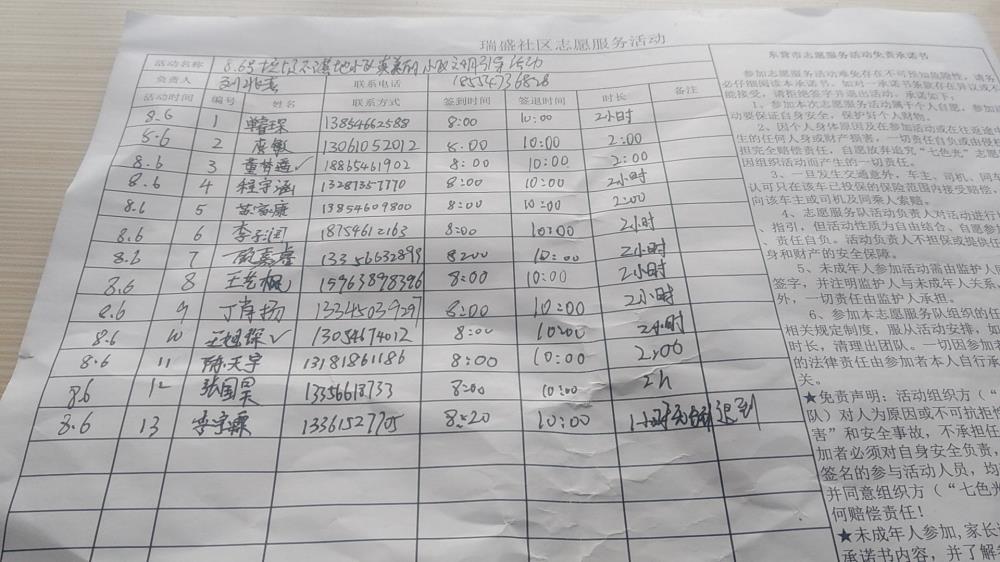 瑞盛社区志愿服务活动
活动名称 8.6号
负责人 联系电话 18554736828
活动时间 编号 姓名 联系方式 签到时间 签退时间 时长 备注
8.6 1 13854662588 8:00 10:00 2小时
8.6 2 唐敏 13061052012 8:00 10:00 2:00
8.6 3 18865461902 8:00 10:00 2:00
8.6 4 程守涵 13287357770 8:00 10:00 2小时
8.6 5 13854609800 8:00 10:00 2:00
8.6 6 李 8:00 10:00 2小时
8.6 7 8:00 10:00 2小时
8.6 8 王艺枫 15963898396 8:00 10:00 2小时
8.6 9 丁肖扬 8:00 10:00 2小时
8.6 10 13054674012 8:00 10:00 2小时
8.6 11 陈天宇 13181861186 8:00 10:00 2:00
8.6 12 张国昊 8:00 10:00 2h
8.6 13 李宇霖 13361527705 8:20 10:00 1小时 迟到
东营市志愿服务活动免责承诺书
参加志愿服务活动难免存在不可预知危险性,请务
必仔细阅读本承诺书,如对一承诺书条款存在异议或不
能接受,请拒绝签字并退出活动,承诺如下:
1、参加本次志愿服务活动属于个人自愿,参加
动要保证自身安全,保护好个人财物。
2、因个人身体原因及在参加活动或在往返途
生的任何人身或财产损害,一切责任自负或由侵
担完全赔偿责任,自愿放弃追究“七色光”志愿
因组织活动而产生的一切责任。
3、一旦发生交通意外,车主、司机、同车
认可只在该车已投保的保险范围内接受赔偿,
向该车主或司机及同乘人索赔。
4、志愿服务队活动负责人对活动进行
、指引,但活动性质为自由结合、自愿参加
、责任自负。活动负责人不担保或提供任
身和财产的安全保障。
5、未成年人参加活动需由监护人
签字,并注明监护人与未成年人关系
外,一切责任由监护人承担。
6、参加本志愿服务队组织的任
相关规定制度,服从活动安排,如
时长,清理出团队。一切因参加者
的法律责任由参加者本人自行承
关。
★免责声明:活动组织方(“
队)对人为原因或不可抗拒
害”和安全事故,不承担任
加者必须对自身安全负责,
签名的参与活动人员,均
并同意组织方(“七色光
何赔偿责任!
★未成年人参加,家长
承诺书内容,并了解